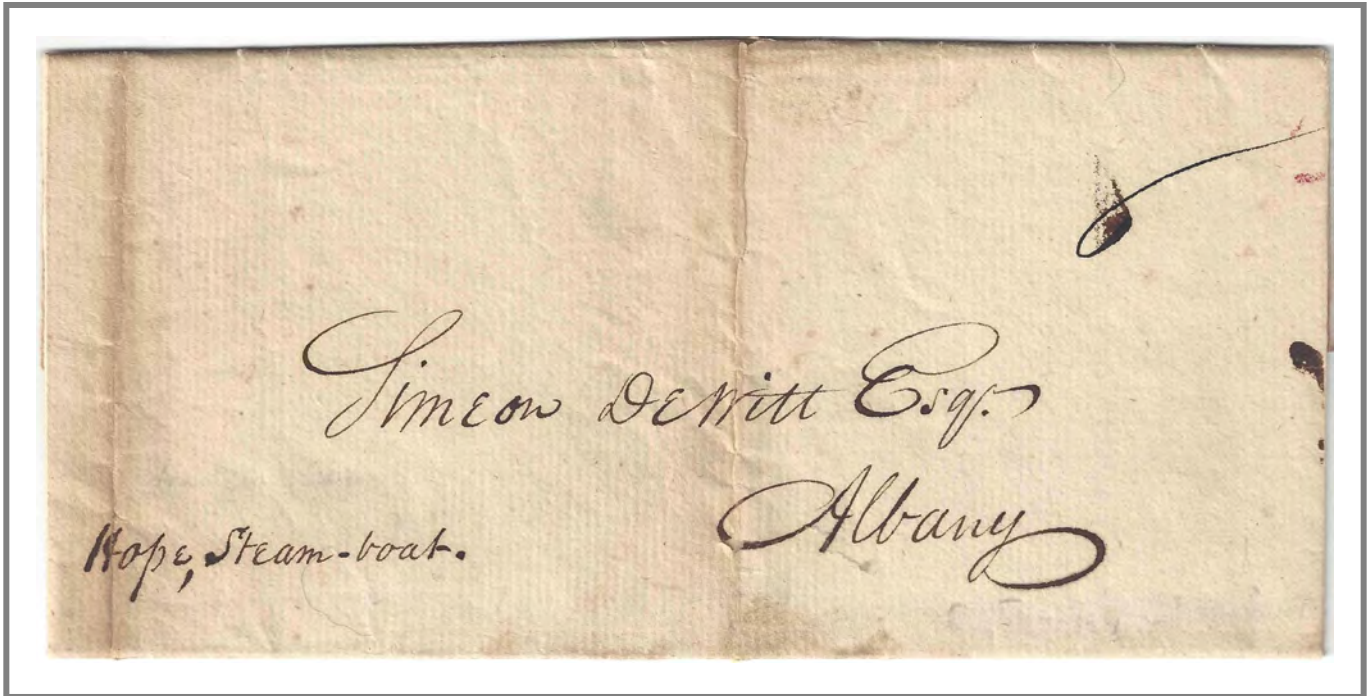 6
Simeon DeWitt Esqr.
Albany
Hope, Steam-boat.